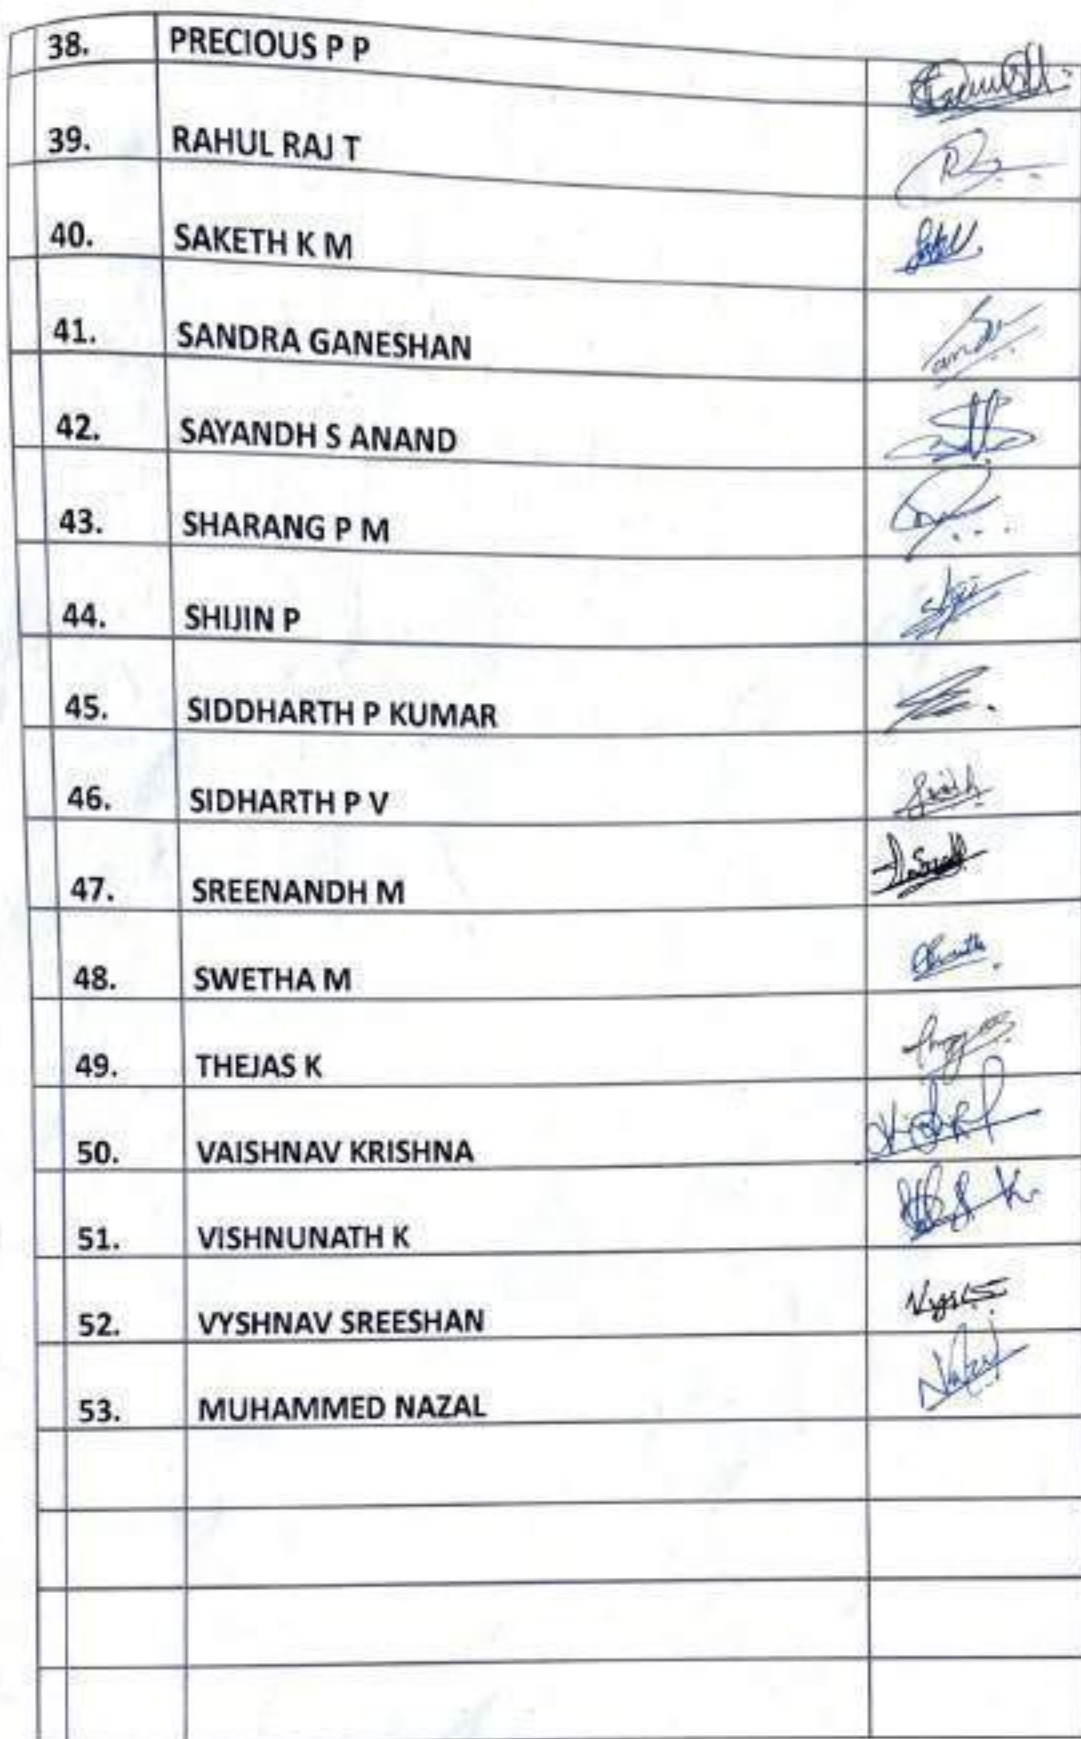 38. PRECIOUS P P
39. RAHUL RAJ T
40. SAKETH K M
41. SANDRA GANESHAN
42. SAYANDH S ANAND
43. SHARANG P M
44. SHIJIN P
45. SIDDHARTH P KUMAR
46. SIDHARTH P V
47. SREENANDH M
48. SWETHA M
49. THEJAS K
50. VAISHNAV KRISHNA
51. VISHNUNATH K
52. VYSHNAV SREESHAN
53. MUHAMMED NAZAL